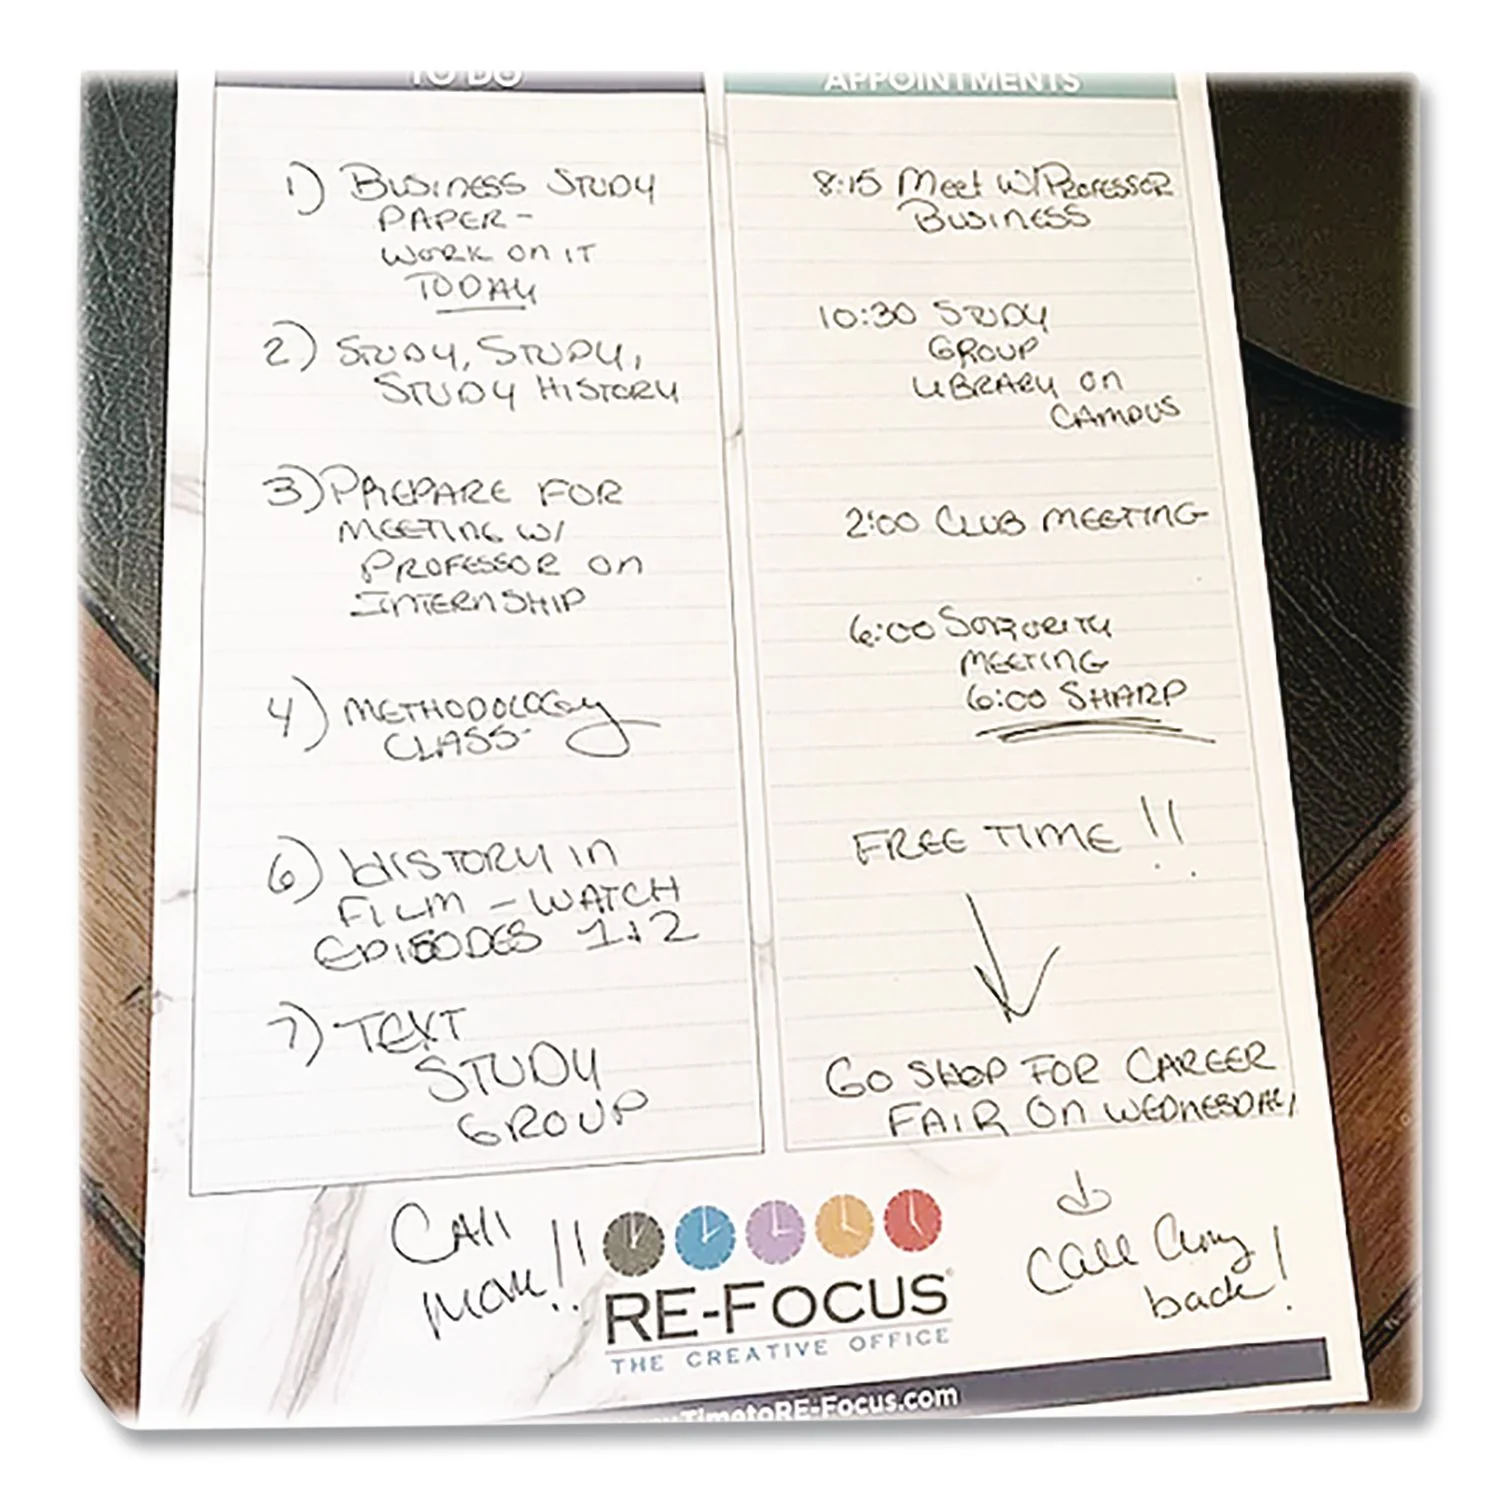 TO DO
1) BUSINESS STUDY
PAPER-
WORK ON IT
TODAY
2) STUDY, STUDY,
STUDY HISTORY
3) PREPARE FOR
MEETING W/
PROFESSOR ON
INTERNSHIP
4) METHODOLOGY
CLASS-
6) HISTORY IN
FILM - WATCH
EPISODES 1+2
7) TEXT
STUDY
GROUP
APPOINTMENTS
8:15 Meet W/PROFESSOR
BUSINESS
10:30 STUDY
GROUP
LIBRARY ON
CAMPUS
2:00 CLUB MEETING
6:00 SORORITY
MEETING
6:00 SHARP
FREE TIME !!
GO SHOP FOR CAREER
FAIR ON WEDNESDAY
Call
Mom!!
Call Amy
back!
RE-FOCUS®
THE CREATIVE OFFICE
TimetoRE-Focus.com